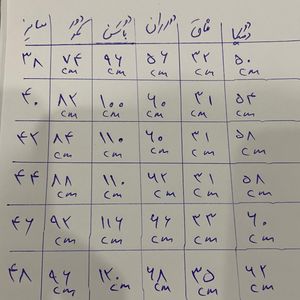 سایز دور کمر دور باسن دور ران فاق دمپا
۳۸ ۷۴ cm ۹۶ cm ۵۶ cm ۳۲ cm ۵۰ cm
۴۰ ۸۲ cm ۱۰۰ cm ۶۰ cm ۳۱ cm ۵۴ cm
۴۲ ۸۴ cm ۱۱۰ cm ۶۰ cm ۳۱ cm ۵۸ cm
۴۴ ۸۸ cm ۱۱۰ cm ۶۲ cm ۳۱ cm ۵۸ cm
۴۶ ۹۲ cm ۱۱۶ cm ۶۶ cm ۳۳ cm ۶۰ cm
۴۸ ۹۶ cm ۱۲۰ cm ۶۸ cm ۳۵ cm ۶۲ cm